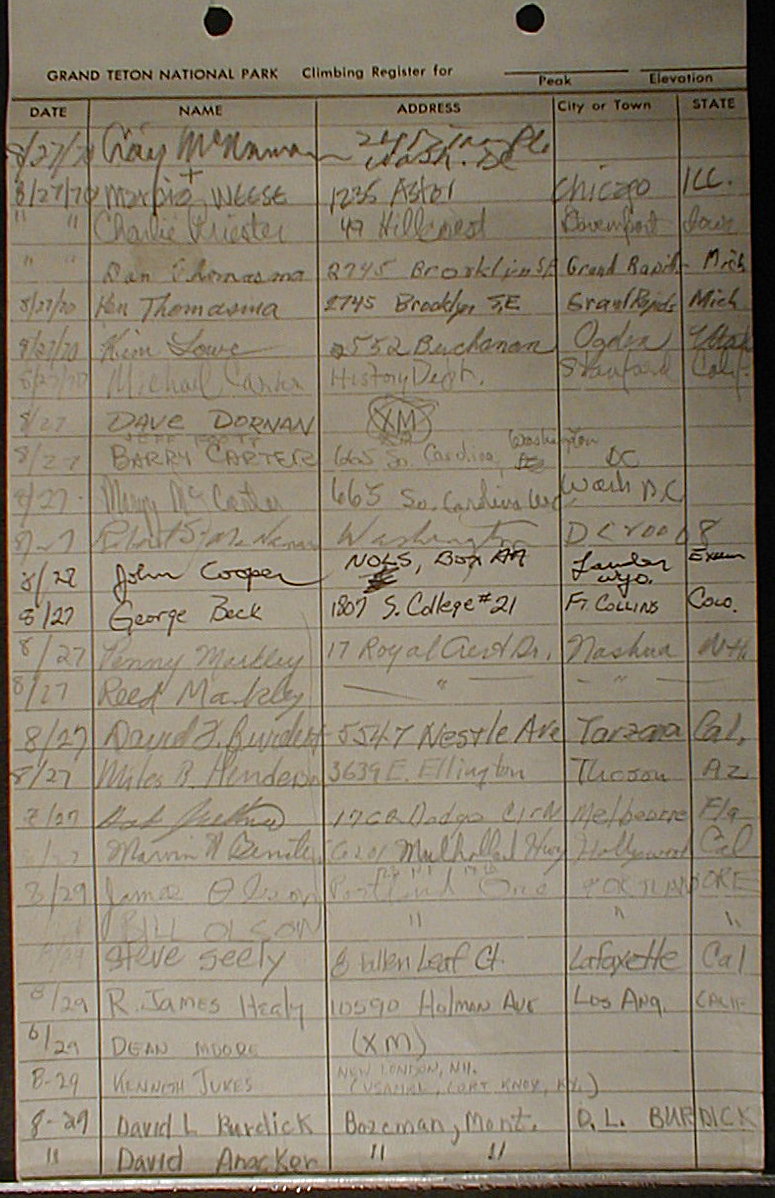 GRAND TETON NATIONAL PARK Climbing Register for
Peak Elevation
DATE NAME ADDRESS City or Town STATE
8/27/70 Craig McNamara Wash. DC
8/27/70 + WEESE 1235 Astor Chicago ILL.
" " Charlie Priester 49 Hillcrest Davenport Iowa
" " Dan Thomasma 2745 Brooklyn SE Grand Rapids Mich
8/27/70 Ken Thomasma 2745 Brooklyn S.E Grand Rapids Mich
8/27/70 Kim Lowe 2552 Buchanan Ogden Utah
8/27/70 Michael Carter History Dept. Stanford Calif.
8/27 DAVE DORNAN (XM)
8/27 BARRY CARTER 665 So. Carolina, Washington DC
8/27 665 So. Carolina Ave Wash D.C
8/27 Robert S. McNamara Washington DC
8/28 John Cooper NOLS, Box AA Lander Wyo. Exum
8/27 George Beck 1807 S. College #21 Ft COLLINS Colo.
8/27 Penny Markley 17 Royal Crest Dr. Nashua N.H.
8/27 Reed Markley — " — - " -
8/27 David L. Burdick 5547 Nestle Ave Tarzana Cal.
8/27 Miles B. Henderson 3639 E. Ellington Tucson AZ
8/27 Dodge Cir N Melbourne Fla
8/27 Marvin 6201 Mulholland Hwy Hollywood Cal
8/29 James Olson Portland Ore PORTLAND ORE
BILL OLSON " " "
8/29 Steve Seely 8 Fallen Leaf Ct. Lafayette Cal
8/29 R. James Healy 10590 Holman Ave Los Ang. CALIF
8/29 DEAN MOORE (XM)
8-29 KENNITH JUKES NEW LONDON, NH.
(USAMRL, FORT KNOX, KY.)
8-29 David L Burdick Bozeman, Mont. D.L. BURDICK
" David Anacker " "